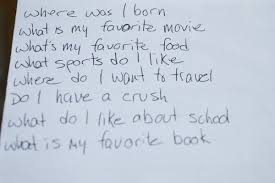 where was I born
what is my favorite movie
what's my favorite food
what sports do I like
where do I want to travel
Do I have a crush
what do I like about school
what is my favorite book